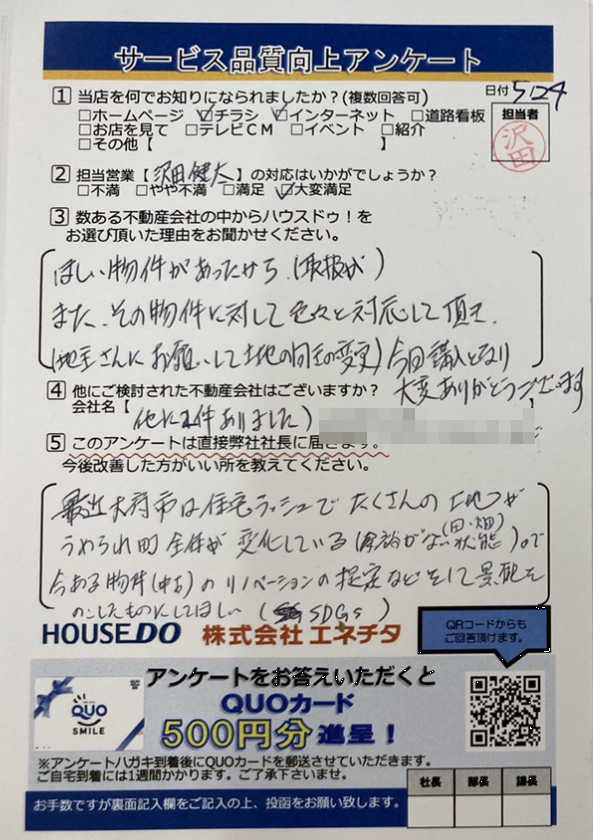 サービス品質向上アンケート
日付 5/24
1 当店を何でお知りになられましたか？(複数回答可)
□ホームページ ☑チラシ ☑インターネット □道路看板
□お店を見て □テレビCM □イベント □紹介
□その他【 】
担当者
沢田
2 担当営業【沢田健太】の対応はいかがでしょうか？
□不満 □やや不満 □満足 ☑大変満足
3 数ある不動産会社の中からハウスドゥ！を
お選び頂いた理由をお聞かせください。
ほしい物件があったから。(取扱が)
また、その物件に対して色々と対応して頂き、
(地主さんにお願いして土地の向きの変更)今回購入となり
大変ありがとうございます
4 他にご検討された不動産会社はございますか？
会社名【 】
他に2件ありました)
5 このアンケートは直接弊社社長に届きます。
今後改善した方がいい所を教えてください。
最近大府市は住宅ラッシュでたくさんの土地が
うめられ町全体が変化している(余裕がない状態)ので
(田・畑)
今ある物件(中古)のリノベーションの提案などそして景観を
のこしたものにしてほしい(SDGs)
HOUSEDO 株式会社 エネチタ
QRコードからも
ご回答頂けます。
アンケートをお答えいただくと
QUOカード
500円分進呈！
QUO
SMILE
※アンケートハガキ到着後にQUOカードを郵送させていただきます。
ご自宅到着には1週間かかります。ご了承下さいませ。
社長 部長 課長
お手数ですが裏面記入欄をご記入の上、投函をお願い致します。